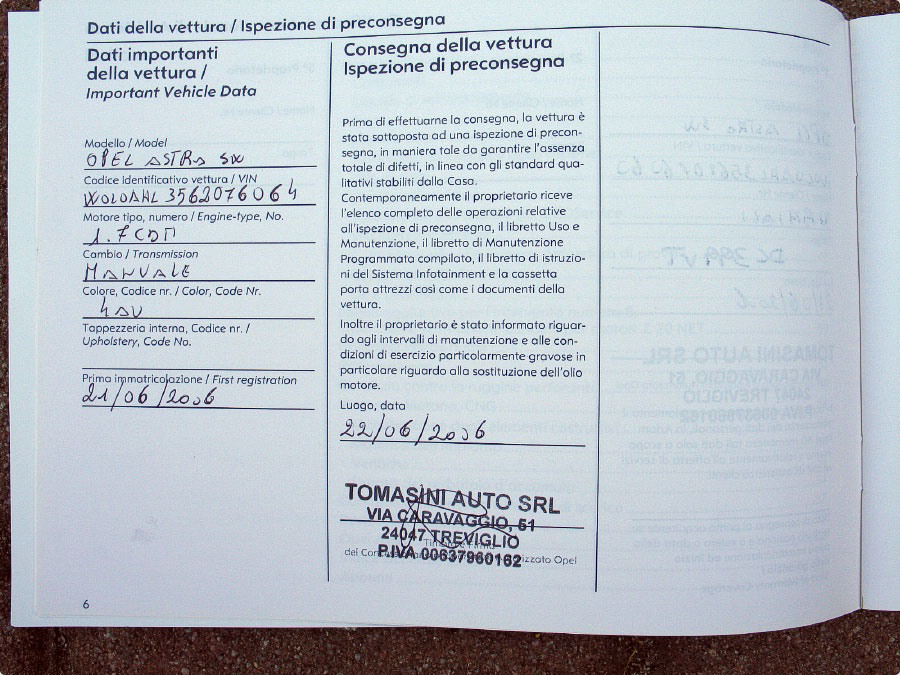 Dati della vettura / Ispezione di preconsegna
Dati importanti
della vettura /
Important Vehicle Data
Modello / Model
OPEL ASTRA SW
Codice identificativo vettura / VIN
WOLOAHL3562076064
Motore tipo, numero / Engine-type, No.
1.7 CDTI
Cambio / Transmission
MANUALE
Colore, Codice nr. / Color, Code Nr.
Tappezzeria interna, Codice nr. /
Upholstery, Code No.
Prima immatricolazione / First registration
21/06/2006
Consegna della vettura
Ispezione di preconsegna
Prima di effettuarne la consegna, la vettura è
stata sottoposta ad una ispezione di precon-
segna, in maniera tale da garantire l'assenza
totale di difetti, in linea con gli standard qua-
litativi stabiliti dalla Casa.
Contemporaneamente il proprietario riceve
l'elenco completo delle operazioni relative
all'ispezione di preconsegna, il libretto Uso e
Manutenzione, il libretto di Manutenzione
Programmata compilato, il libretto di istruzio-
ni del Sistema Infotainment e la cassetta
porta attrezzi così come i documenti della
vettura.
Inoltre il proprietario è stato informato riguar-
do agli intervalli di manutenzione e alle con-
dizioni di esercizio particolarmente gravose in
particolare riguardo alla sostituzione dell'olio
motore.
Luogo, data
22/06/2006
TOMASINI AUTO SRL
VIA CARAVAGGIO, 51
24047 TREVIGLIO
P.IVA 00637960162
del Opel
6